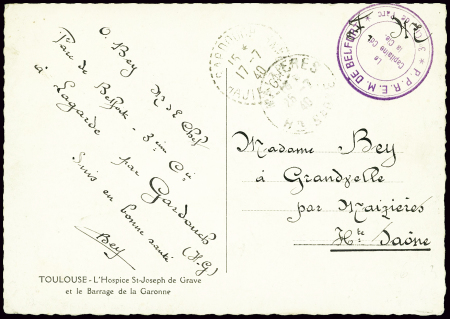 O. Bey M d. L. Chef
Parc de Belfort - 3ème Cie
à Lagarde par Gardouch
(H.G)
Suis en bonne santé
Bey
TOULOUSE - L'Hospice St-Joseph de Grave
et le Barrage de la Garonne
15 *
17-7
40
MAIZIERES
40
F. M
P.P.R.E.M. DE BELFORT
Le
Capitaine Cdt
la
Madame Bey
à Grandvelle
par Maizières
Hte Saône